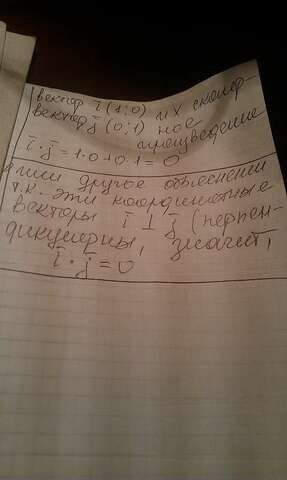 вектор ī (1; 0) их скаляр-
вектор j̄ (0; 1) ное
произведение
ī · j̄ = 1·0+0·1=0
или другое объяснение
т.к. эти координатные
векторы ī ⊥ j̄ (перпен-
дикулярны, значит,
ī · j̄ = 0